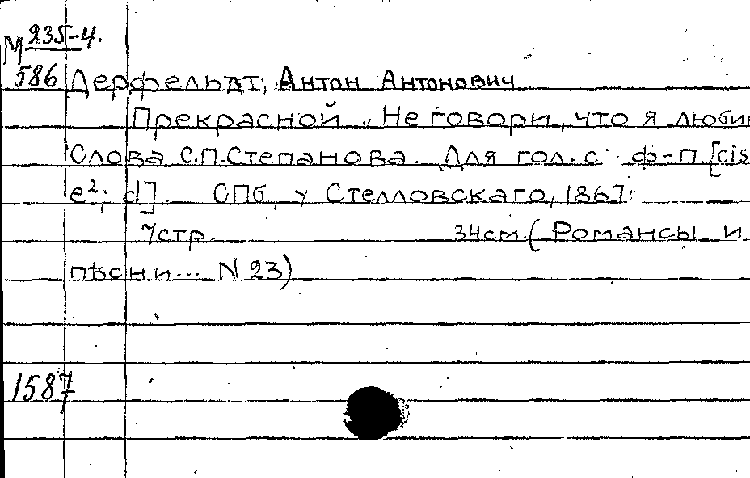 М 235-4.
586 Дерфельдт, Антон Антонович
Прекрасной. Не говори, что я люби
Слова С.П.Степанова. Для гол. с ф-п [cis
e²; d]. СПб, у Стелловскаго, 1867.
7стр. 34см. (Романсы и
пѣсни... N 23)
1587